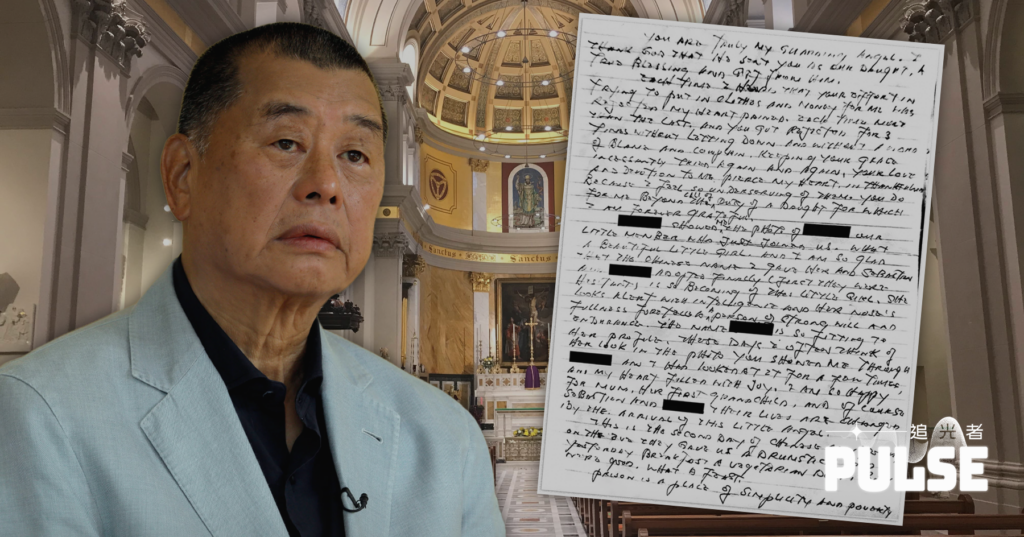 Sanctus
Sanctus
YOU ARE TRULY MY GUARDING ANGEL. I
THANK GOD THAT HE SENT YOU AS OUR DAUGHT, A
TRUE BLESSING AND GIFT FROM HIM.
EACH TIMES I HEARD THAT YOUR EFFORT IN
TRYING TO PUT IN CLOTHES AND MONEY FOR ME WAS
REJECTED MY HEART PAINED. EACH TIMES MORE
THAN THE LAST. AND YOU GOT REJECTED FOR 3
TIMES WITHOUT LETTING DOWN AND WITHOUT A WORD
OF BLAME AND COMPLAIN. KEEPING YOUR GRACE
INCESSANTLY TRIED AGAIN AND AGAIN, YOUR LOVE
AND DEVOTION TO ME PIERCE MY HEART, IN
BECAUSE I FEEL SO UNDESERVING OF YOU DO
FOR ME BEYOND THE DUTY OF A DAUGHT FOR WHICH
I AM FOREVER GRATEFUL.
SHOWED ME THE PHOTO OF OUR
LITTLE MEMBER WHO JUST JOINED US. WHAT
A BEAUTIFUL LITTLE GIRL AND I AM SO GLAD
THE CHINESE NAME I GAVE HER AND SEBASTIAN
AND ADOPTED
IS SO BECOMING OF THIS LITTLE GIRL. SHE
LOOKS ALERT WITH INTELLIGENCE AND HER NOSE'S
FULLNESS A PERSON OF STRONG WILL AND
ENDURANCE. THE NAME IS SO FITTING TO
HER PROFILE. THESE DAYS I OFTEN THINK OF
HER LOOK IN THE PHOTO YOU SHOWED ME THROUGH
AND I HAD LOOKED AT IT FOR A FEW TIMES
AND MY HEART FILLED WITH JOY. I AM SO HAPPY
FOR MUM, HER FIRST GRANDCHILD, AND OF COURSE
SEBASTIAN AND THEIR LIVES ARE
BY THE ARRIVAL OF THIS LITTLE ANGEL.
THIS IS THE SECOND DAY OF CHINESE
THEY GAVE US A DRUMSTICK
YESTERDAY BREAKFAST A VEGETARIAN
WAS GOOD. WHAT A FEAST.
PRISON IS A PLACE OF SIMPLICITY AND POVERTY
追光者
PULSE